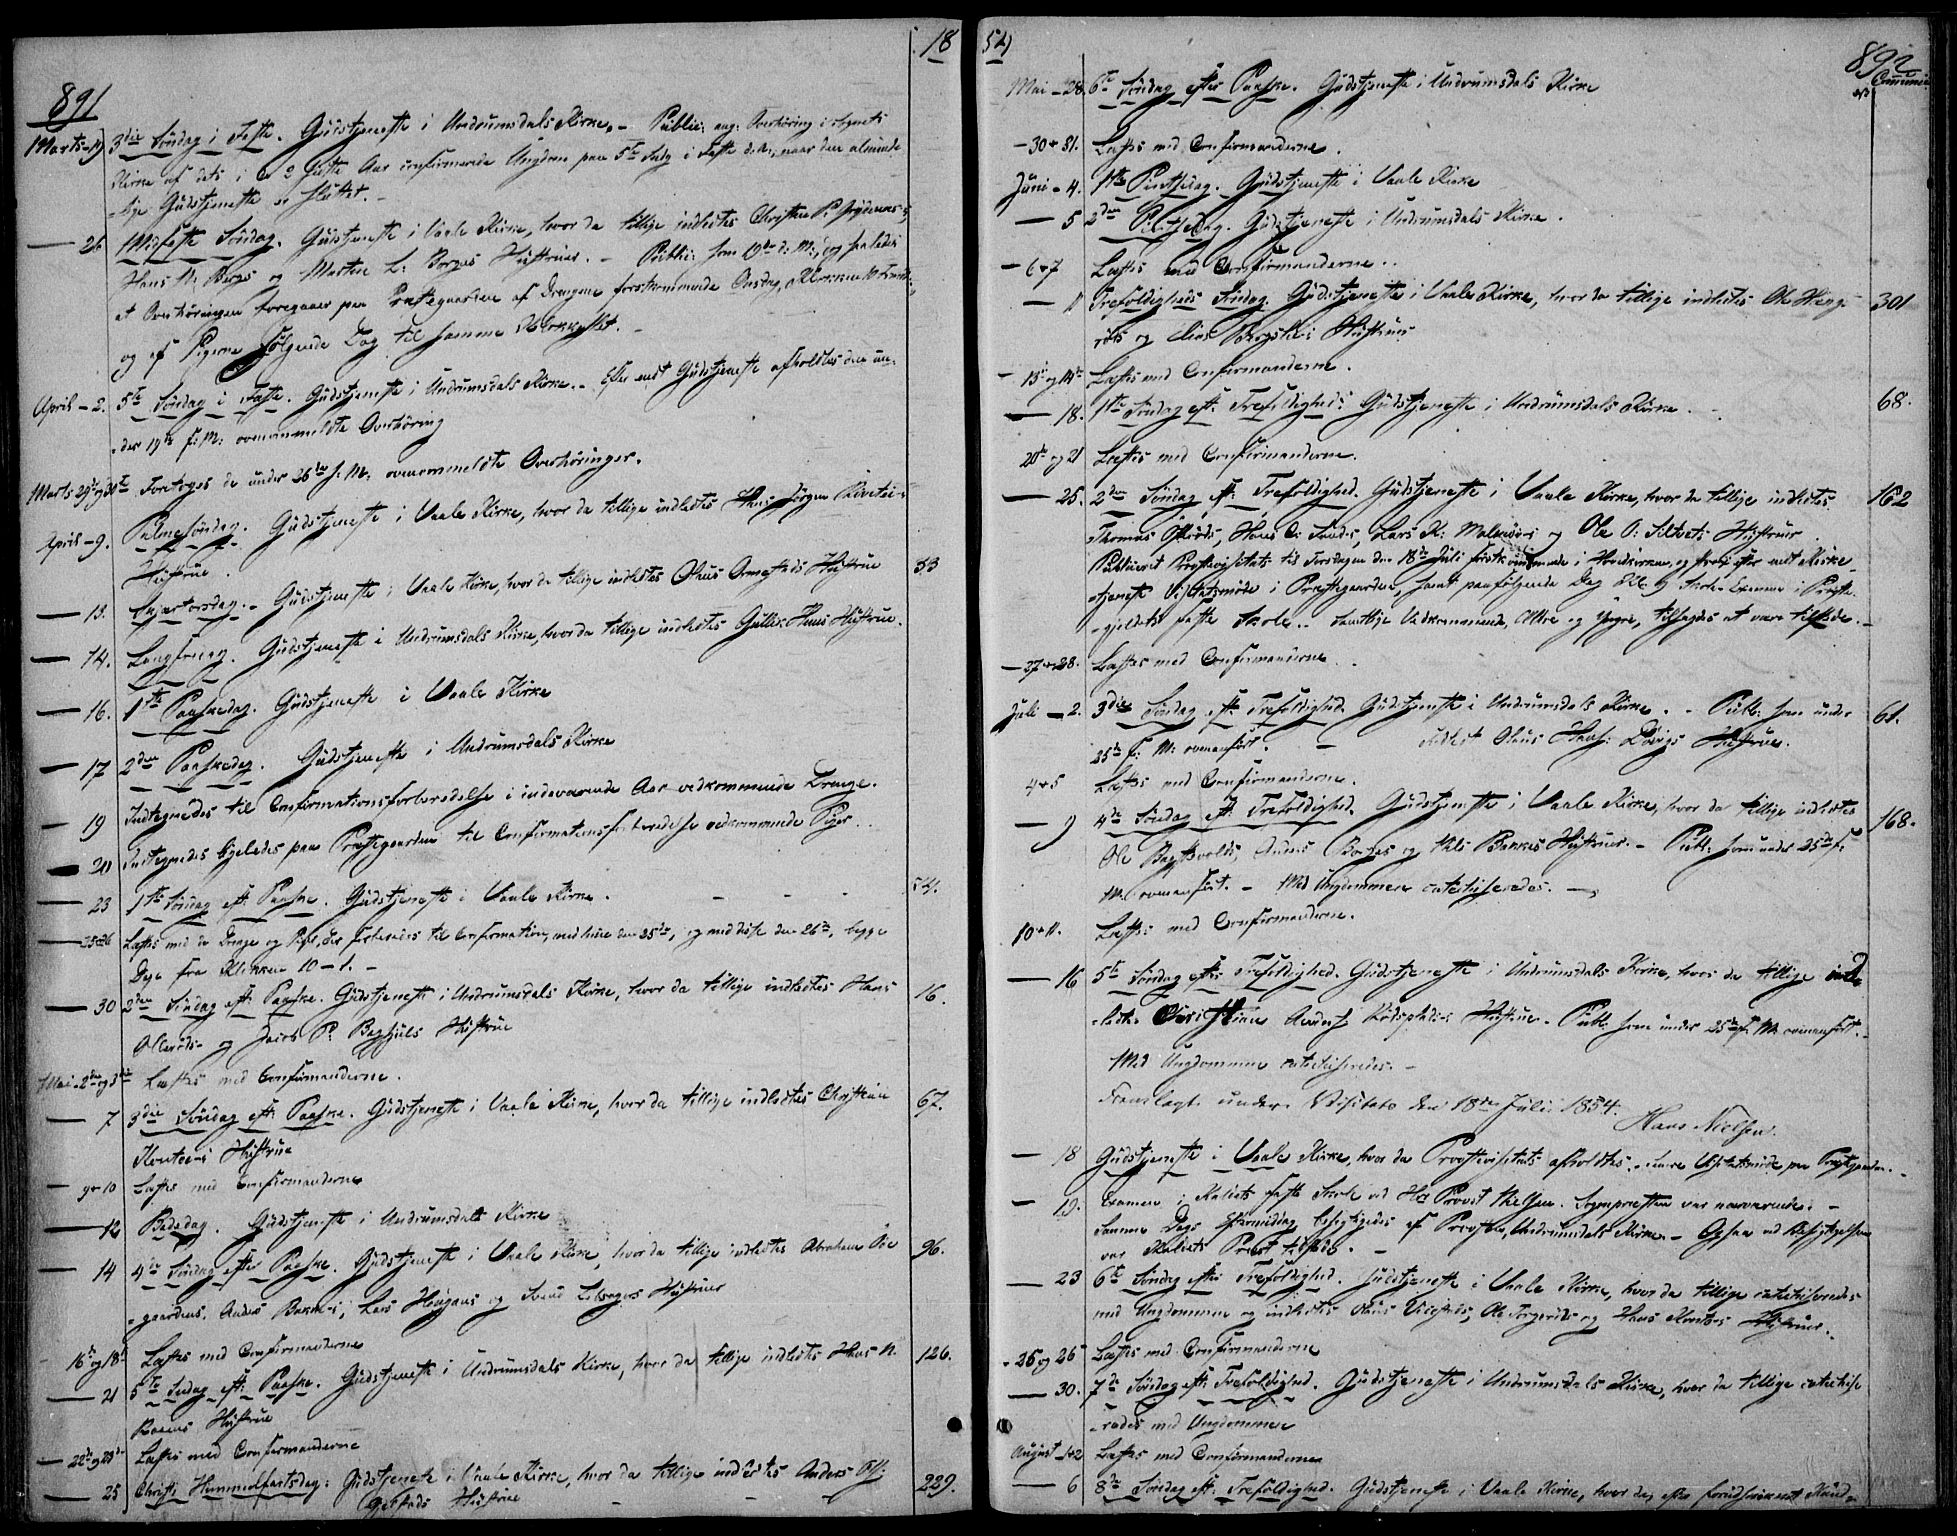 891
18
Marts - 19 3die Søndag i Faste. Gudstjeneste i Undrumsdals Kirke. - Public: ang: Overhøring i Sognets
Kirke af dets i de 2 sidste Aar confirmerede Ungdom paa 5te Sødg i Faste d. A., naar den alminde-
lige Gudstjeneste er sluttet. -
26. Midfaste Søndag. Gudstjeneste i Vaale Kirke, hvor da tillige indledtes Christen P.
Hans N: Berges og Morten L: Borges Hustruer. - Public: som 19de d: M:, og saaledes
at Overhøringen foregaaer paa Præstegaarden af Drengene førstkommende Onsdag, Klokken 10 Formid:,
og af Pigerne følgende Dag til samme Klokkeslet. -
April - 2. 5te Søndag i Faste. Gudstjeneste i Undrumsdals Kirke. - Efter endt Gudstjeneste afholdtes den un-
der 19de f: M: ovenanmeldte Overhøring
Marts 29de og 30te Foretoges de under 26de f. M. ovenanmeldte Overhøringer.
April - 9. Palmesøndag. Gudstjeneste i Vaale Kirke, hvor da tillige indledtes Hans Jørgen
Hustrue.
13. Skjærtorsdag. - Gudstjeneste i Vaale Kirke, hvor da tillige indledtes Olaus Hustrue 53
14. Langfredag. Gudstjeneste i Undrumsdals Kirke, hvor da tillige indledtes Gullik Huus Hustrue.
16. 1ste Paaskedag. Gudstjeneste i Vaale Kirke
17 2den Paaskedag. Gudstjeneste i Undrumsdals Kirke
19 Indtegnedes til Confirmationsforberedelse i indeværende Aar vedkommende Drenge.
20 Indtegnedes ligeledes paa Præstegaarden til Confirmationsforberedelse vedkommende Piger.
23 1ste Søndag eft: Paaske. Gudstjeneste i Vaale Kirke. - - - 54.
25 og 26 Læstes med de Drenge og Piger, der forberedes til Confirmation, med hine den 25de, og med disse den 26de, begge
Dage fra Klokken 10 - 1. -
30 2den Søndag eft: Paaske. Gudstjeneste i Undrumsdals Kirke, hvor da tillige indledtes Hans 16.
og Jacob P: Hustrue
Mai - 2den og 3die Læstes med Confirmanderne.
7 3die Søndag eft: Paaske. Gudstjeneste i Vaale Kirke, hvor da tillige indledtes Christian 67.
Hustrue
9 + 10 Læstes med Confirmanderne
12 Bededag. Gudstjeneste i Undrumsdals Kirke
14 4de Søndag efter Paaske. Gudstjeneste i Vaale Kirke, hvor da tillige indledtes Abraham 96.
gaardens, Anders, Lars og Svend Hustruer
16de og 18de Læstes med Confirmanderne
21 5te Søndag eft: Paaske. Gudstjeneste i Undrumsdals Kirke, hvor da tillige indledtes Hans N. 126.
Hustrue
22de og 23de Læstes med Confirmanderne
25 Christi Himmelfartsdag: Gudstjeneste i Vaale Kirke, hvor da tillige indledtes Anders 229.
Hustrue
54)
892
Communic:
Mai - 28 6te Søndag efter Paaske. Gudstjeneste i Undrumsdals Kirke
- 30 + 31. Læstes med Confirmanderne.
Juni - 4. 1ste Pintsedag. Gudstjeneste i Vaale Kirke
5 2den Pintsedag. Gudstjeneste i Undrumsdals Kirke.
- 6 + 7 Læstes med Confirmanderne.
11 Trefoldigheds Søndag. Gudstjeneste i Vaale Kirke, hvor da tillige indledtes Ole 301
og Hustruer
- 13de og 14de Læstes med Confirmanderne.
18. 1ste Søndag eft: Trefoldighed. Gudstjeneste i Undrumsdals Kirke. 68.
20de og 21 Læstes med Confirmanderne.
25. 2den Søndag eft: Trefoldighed. Gudstjeneste i Vaale Kirke, hvor da tillige indledtes 162
Thomas, Hans C:, Lars K: og Ole O: Hustruer
Publiceret Provstevisitats til Torsdagen den 18de Juli førstkommende i Hovedkirken, og hvor efter endt Kirke-
tjeneste Visitatsmøde i Præstegaarden, samt paafølgende Dag Kl. 9 Skole-Examen i Præste-
gjeldets faste Skole. - Samtlige Vedkommende, Ældre og Yngre, tilsagdes at være tilstede. -
- 27 + 28. Læstes med Confirmanderne.
Juli - 2. 3die Søndag eft: Trefoldighed. Gudstjeneste i Undrumsdals Kirke. - Publ: som under 61.
25de f: M: ovenanført. - Indledt Olaus Hans: Hustrue.
4 + 5 Læstes med Confirmanderne.
9 4de Søndag eft: Trefoldighed. Gudstjeneste i Vaale Kirke, hvor da tillige indledtes 168.
Ole, Anders Borges og Niels Bakkes Hustruer. - Publ: som under 25de f:
M: ovenanført. - Med Ungdommen catechiseredes. -
10 + 11. Læstes med Confirmanderne.
16 5te Søndag efter Trefoldighed. Gudstjeneste i Undrumsdals Kirke, hvor da tillige ind-
ledtes Christian Hustrue. Publ: som under 25de f: M: ovenanført. -
Med Ungdommen catechiseredes. -
Fremlagt under Visitats den 18de Juli 1854.
Hans Nielsen.
18 Gudstjeneste i Vaale Kirke, hvor da Provstevisitats afholdtes, senere Visitatsmøde paa Præstegaarden. -
19. Examen i Kaldets faste Skole ved Hr Provst Nielsen. Sognepræsten var nærværende. -
Samme Dags Eftermiddag besigtigedes af Provsten Undrumsdals Kirke. - Ogsaa ved Besigtigelsen
var Kaldets Præst tilstede. -
23 6te Søndag efter Trefoldighed. Gudstjeneste i Vaale Kirke, hvor da tillige catechiseredes
med Ungdommen og indledtes Olaus, Ole og Hans Hustruer.
- 25 og 26 Læstes med Confirmanderne
30. 7de Søndag eft: Trefoldighed. Gudstjeneste i Undrumsdals Kirke, hvor da tillige catechise-
redes med Ungdommen
August 1+2 Læstes med Confirmanderne
6 8de Søndag eft: Trefoldighed. Gudstjeneste i Vaale Kirke, hvor da, efter